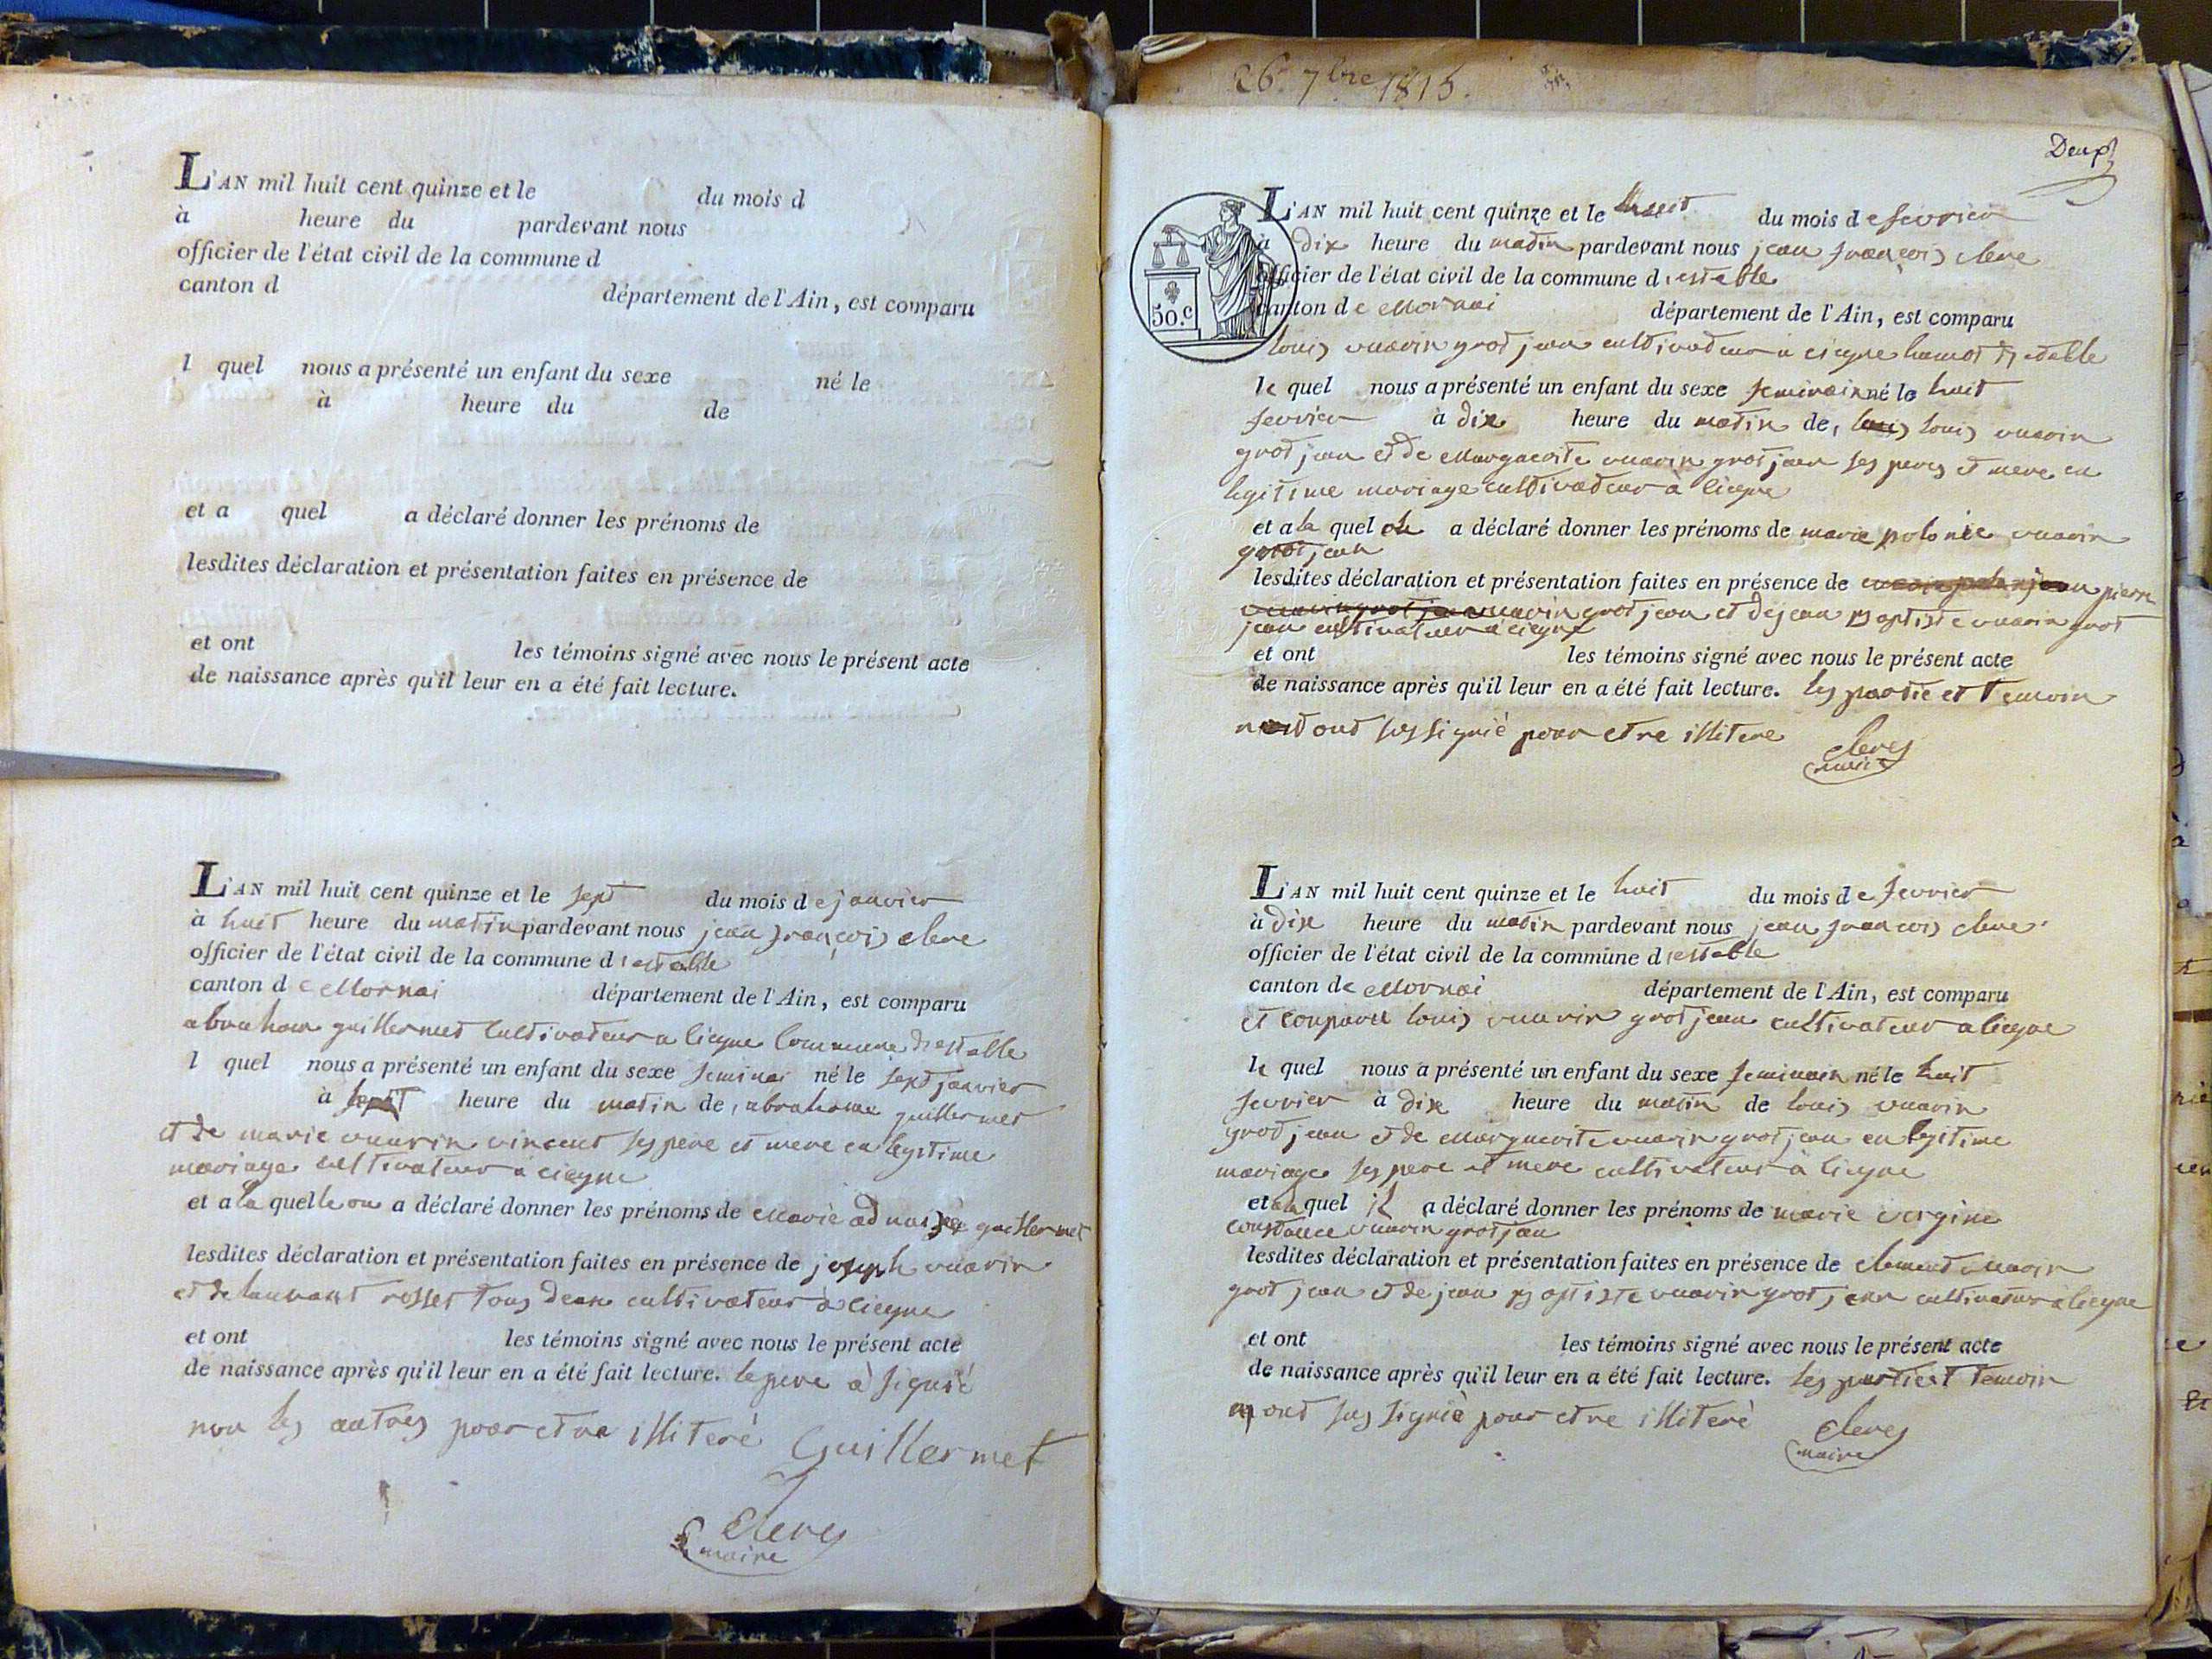 L'AN mil huit cent quinze et le du mois d
à heure du pardevant nous
officier de l'état civil de la commune d
canton d département de l'Ain, est comparu
l quel nous a présenté un enfant du sexe né le
à heure du de
et a quel a déclaré donner les prénoms de
lesdites déclaration et présentation faites en présence de
et ont les témoins signé avec nous le présent acte
de naissance après qu'il leur en a été fait lecture.
L'AN mil huit cent quinze et le sept du mois de janvier
à huit heure du matin pardevant nous jean françois clerc
officier de l'état civil de la commune d
canton de Mornai département de l'Ain, est comparu
abraham guillermet cultivateur a Commune
l quel nous a présenté un enfant du sexe feminai né le sept janvier
à heure du matin de abrahame guillermet
et de marie vuarin vincent ses pere et mere en legitime
mariage cultivateur a
et a la quelle on a déclaré donner les prénoms de Marie guillermet
lesdites déclaration et présentation faites en présence de joseph vuarin
et de rosset tous deux cultivateur à
et ont les témoins signé avec nous le présent acte
de naissance après qu'il leur en a été fait lecture. le pere à signié
non les autres pour etre illiteré Guillermet
Clerc
maire
26 7bre 1815.
Deux
50.c
L'AN mil huit cent quinze et le huit du mois de fevrier
à dix heure du matin pardevant nous jean françois clerc
officier de l'état civil de la commune d
canton de Mornai département de l'Ain, est comparu
louis vuarin grot jean cultivateur a
le quel nous a présenté un enfant du sexe feminain né le huit
fevrier à dix heure du matin de louis louis vuarin
grot jean et de Marguerite vuarin grot jean ses peres et mere en
legitime mariage cultivateur à
et a la quel a déclaré donner les prénoms de marie polonie vuarin
grot jean
lesdites déclaration et présentation faites en présence de pierre
vuarin grot jean et de jean baptiste vuarin grot
jean cultivateur a
et ont les témoins signé avec nous le présent acte
de naissance après qu'il leur en a été fait lecture. les partie et temoin
ont signié pour etre illitere
clerc
maire
L'AN mil huit cent quinze et le huit du mois de fevrier
à dix heure du matin pardevant nous jean francois clerc
officier de l'état civil de la commune d
canton de Mornai département de l'Ain, est comparu
et comparu louis vuarin grot jean cultivateur a
le quel nous a présenté un enfant du sexe feminain né le huit
fevrier à dix heure du matin de louis vuarin
grot jean et de Marguerite vuarin grot jean en legitime
mariage ses pere et mere cultivateur à
et a la quel il a déclaré donner les prénoms de marie vergine
constance vuarin grot jean
lesdites déclaration et présentation faites en présence de clement vuarin
grot jean et de jean baptiste vuarin grot jean cultivateur à
et ont les témoins signé avec nous le présent acte
de naissance après qu'il leur en a été fait lecture. les partie et temoin
ont signié pour etre illiteré
Clerc
maire